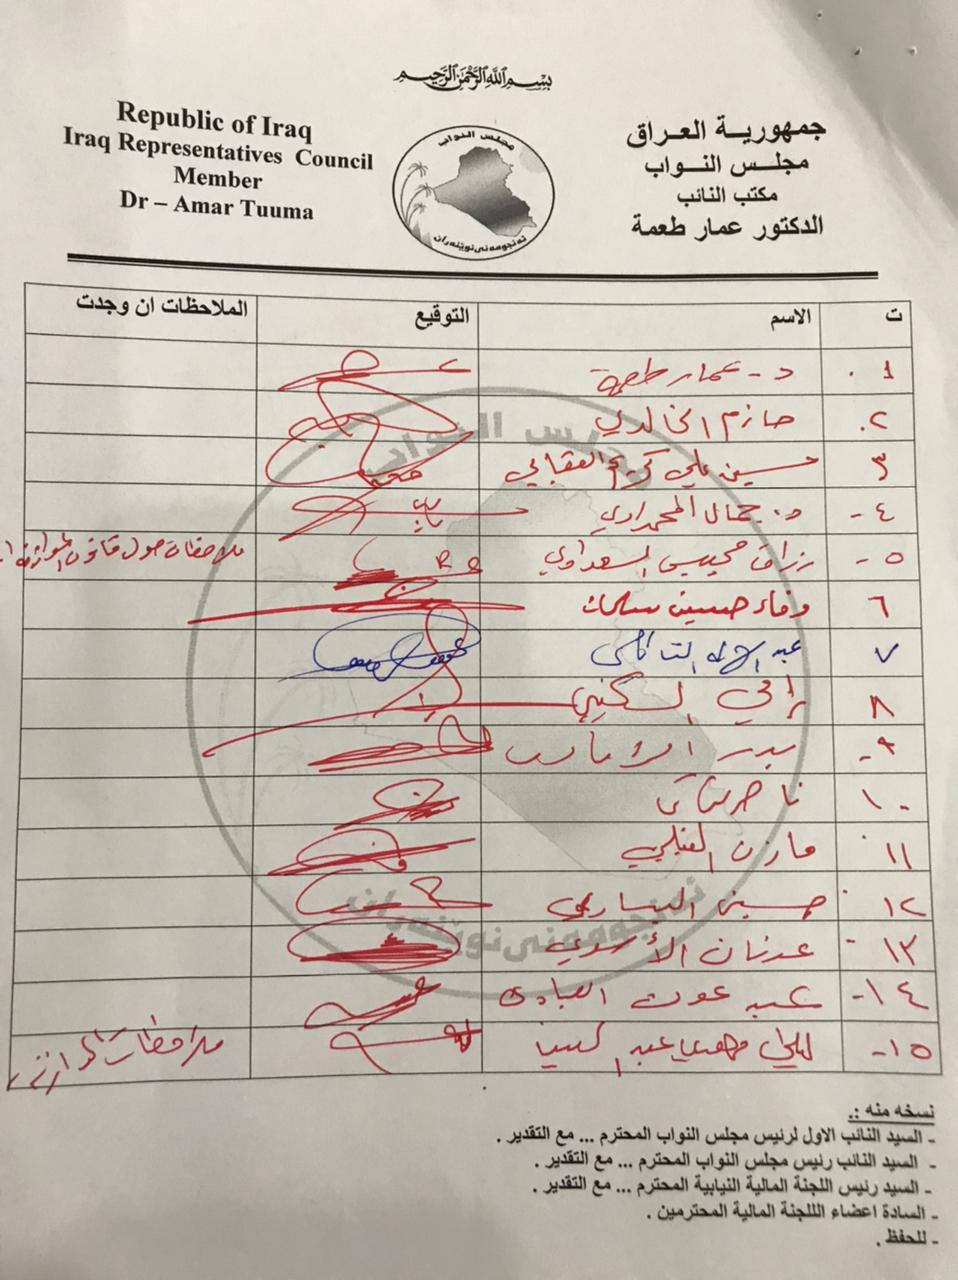 بسم الله الرحمن الرحيم
Republic of Iraq
Iraq Representatives Council
Member
Dr – Amar Tuuma
جمهورية العراق
مجلس النواب
مكتب النائب
الدكتور عمار طعمة
مجلس النواب
ئەنجومەنی نوێنەران
ت الاسم التوقيع الملاحظات ان وجدت
١. د. عمار طعمة
٢. حازم الخالدي
٣ حسين علي كريم العقابي
٤- د. جمال المحمداوي
٥- رزاق محيبس السعداوي ملاحظات حول قانون الموازنة
٦ وفاء حسين سلمان
٧ عبد الاله النائلي
٨ رافي السكيني
٩- بدر
١٠
١١ مازن الفيلي
١٢ حسين اليساري
١٣- عدنان الأسدي
١٤- عبد عون العبادي
١٥- ليلى مهدي عبد الحسين ملاحظات
مجلس النواب
ئەنجومەنی نوێنەران
نسخه منه :.
- السيد النائب الاول لرئيس مجلس النواب المحترم ... مع التقدير .
- السيد النائب رئيس مجلس النواب المحترم ... مع التقدير .
- السيد رئيس اللجنة المالية النيابية المحترم ... مع التقدير .
- السادة اعضاء اللجنة المالية المحترمين .
- للحفظ .